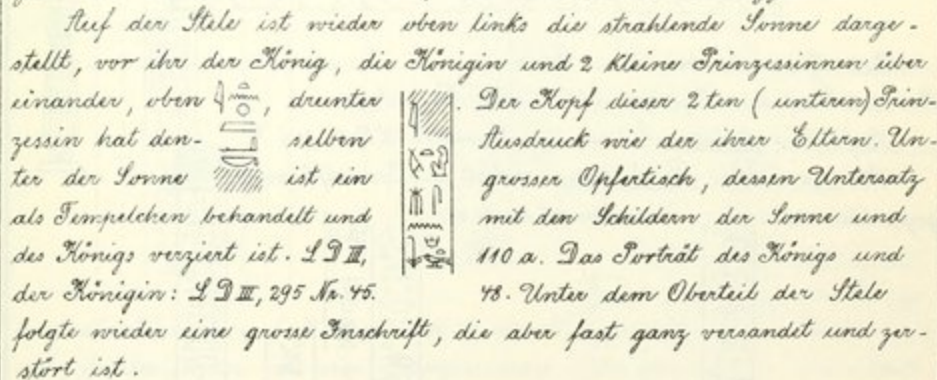 Auf der Stele ist wieder oben links die strahlende Sonne darge-
stellt, vor ihr der König, die Königin und 2 kleine Prinzessinnen über
einander, oben , drunter . Der Kopf dieser 2ten (unteren) Prin-
zessin hat den- selben Ausdruck wie der ihrer Eltern. Un-
ter der Sonne ist ein grosser Opfertisch, dessen Untersatz
als Tempelchen behandelt und mit den Schildern der Sonne und
des Königs verziert ist. L D III, 110 a. Das Porträt des Königs und
der Königin: L D III, 295 Nr. 45. 48. Unter dem Oberteil der Stele
folgte wieder eine grosse Inschrift, die aber fast ganz versandet und zer-
stört ist.